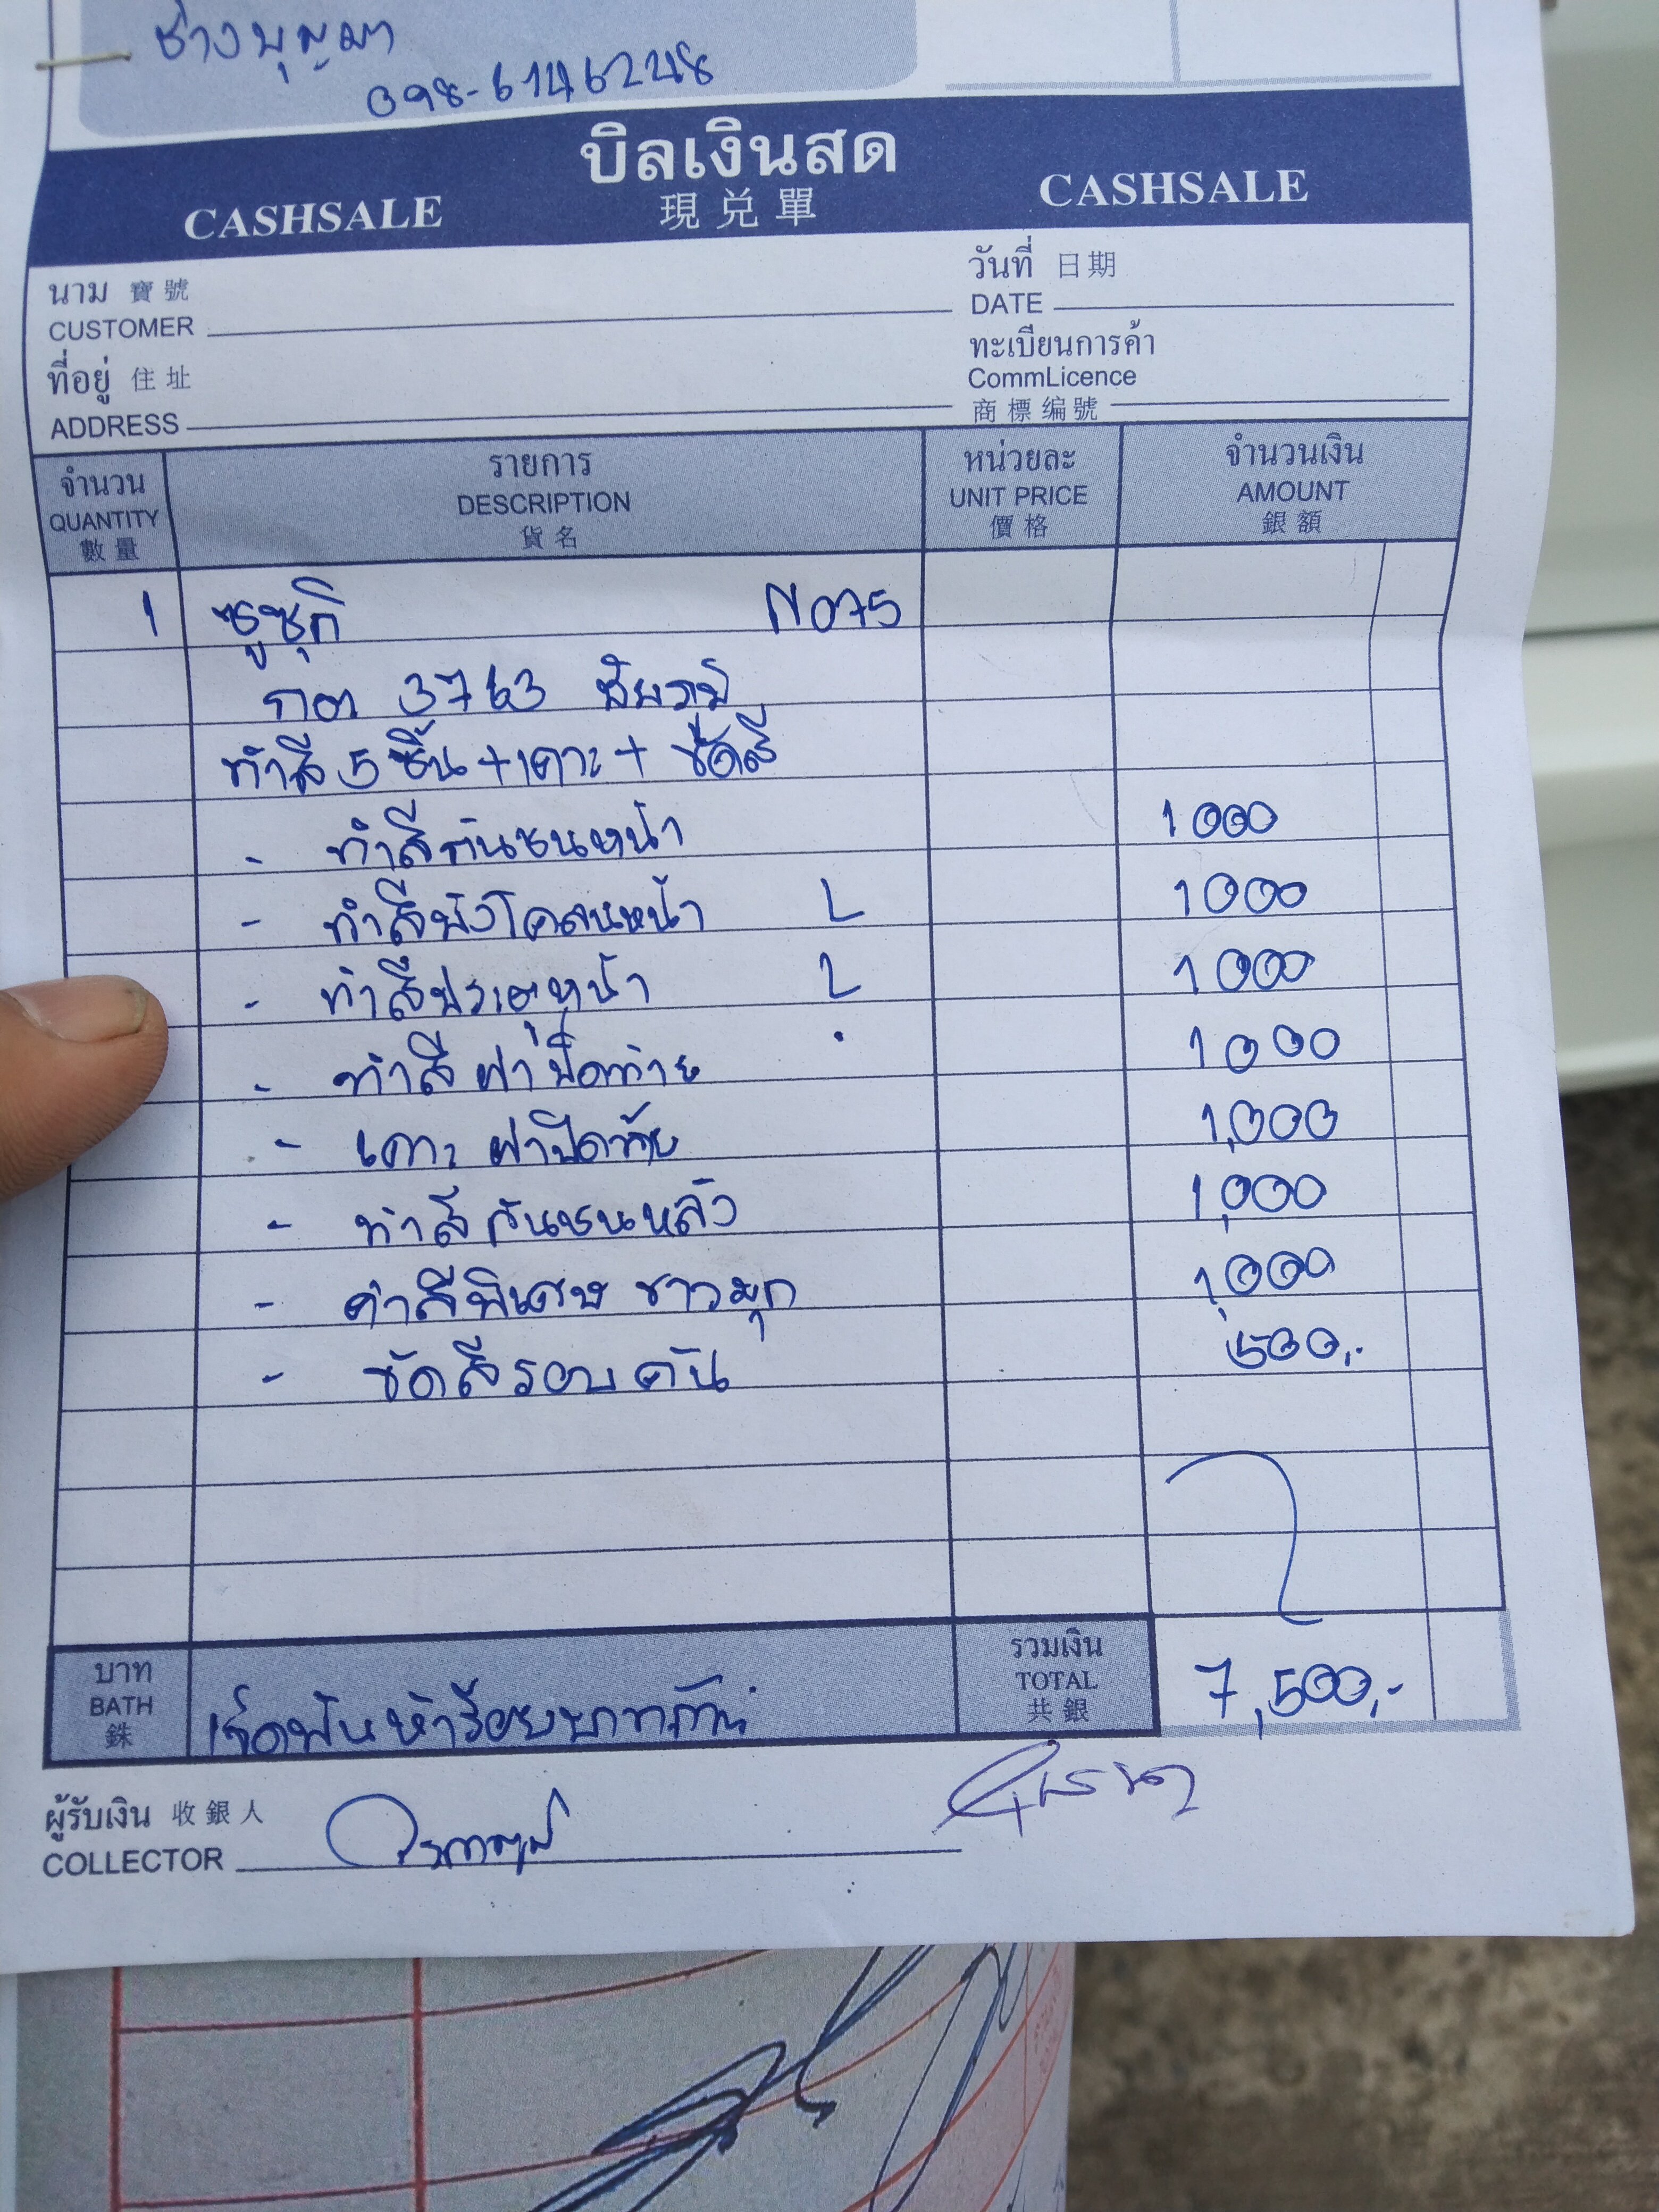 ช่างบุญมา
098-6146248
บิลเงินสด
CASHSALE 現兑單 CASHSALE
นาม 寶號
CUSTOMER
วันที่ 日期
DATE
ที่อยู่ 住址
ADDRESS
ทะเบียนการค้า
CommLicence
商標编號
จำนวน รายการ หน่วยละ จำนวนเงิน
QUANTITY DESCRIPTION UNIT PRICE AMOUNT
數量 貨名 價格 銀額
1 ซูซุกิ N075
กต 3763 ชัยภูมิ
ทำสี 5 ชิ้น + เคาะ + ขัดสี
- ทำสีกันชนหน้า 1000
- ทำสีบังโคลนหน้า L 1000
- ทำสีประตูหน้า L 1000
- ทำสี ฝาปิดท้าย 1000
- เคาะ ฝาปิดท้าย 1,000
- ทำสี กันชนหลัง 1,000
- ค่าสีพิเศษ ขาวมุก 1,000
- ขัดสีรอบคัน 500.-
บาท
BATH
銖
เจ็ดพันห้าร้อยบาทถ้วน
รวมเงิน
TOTAL
共銀
7,500.-
ผู้รับเงิน 收銀人
COLLECTOR